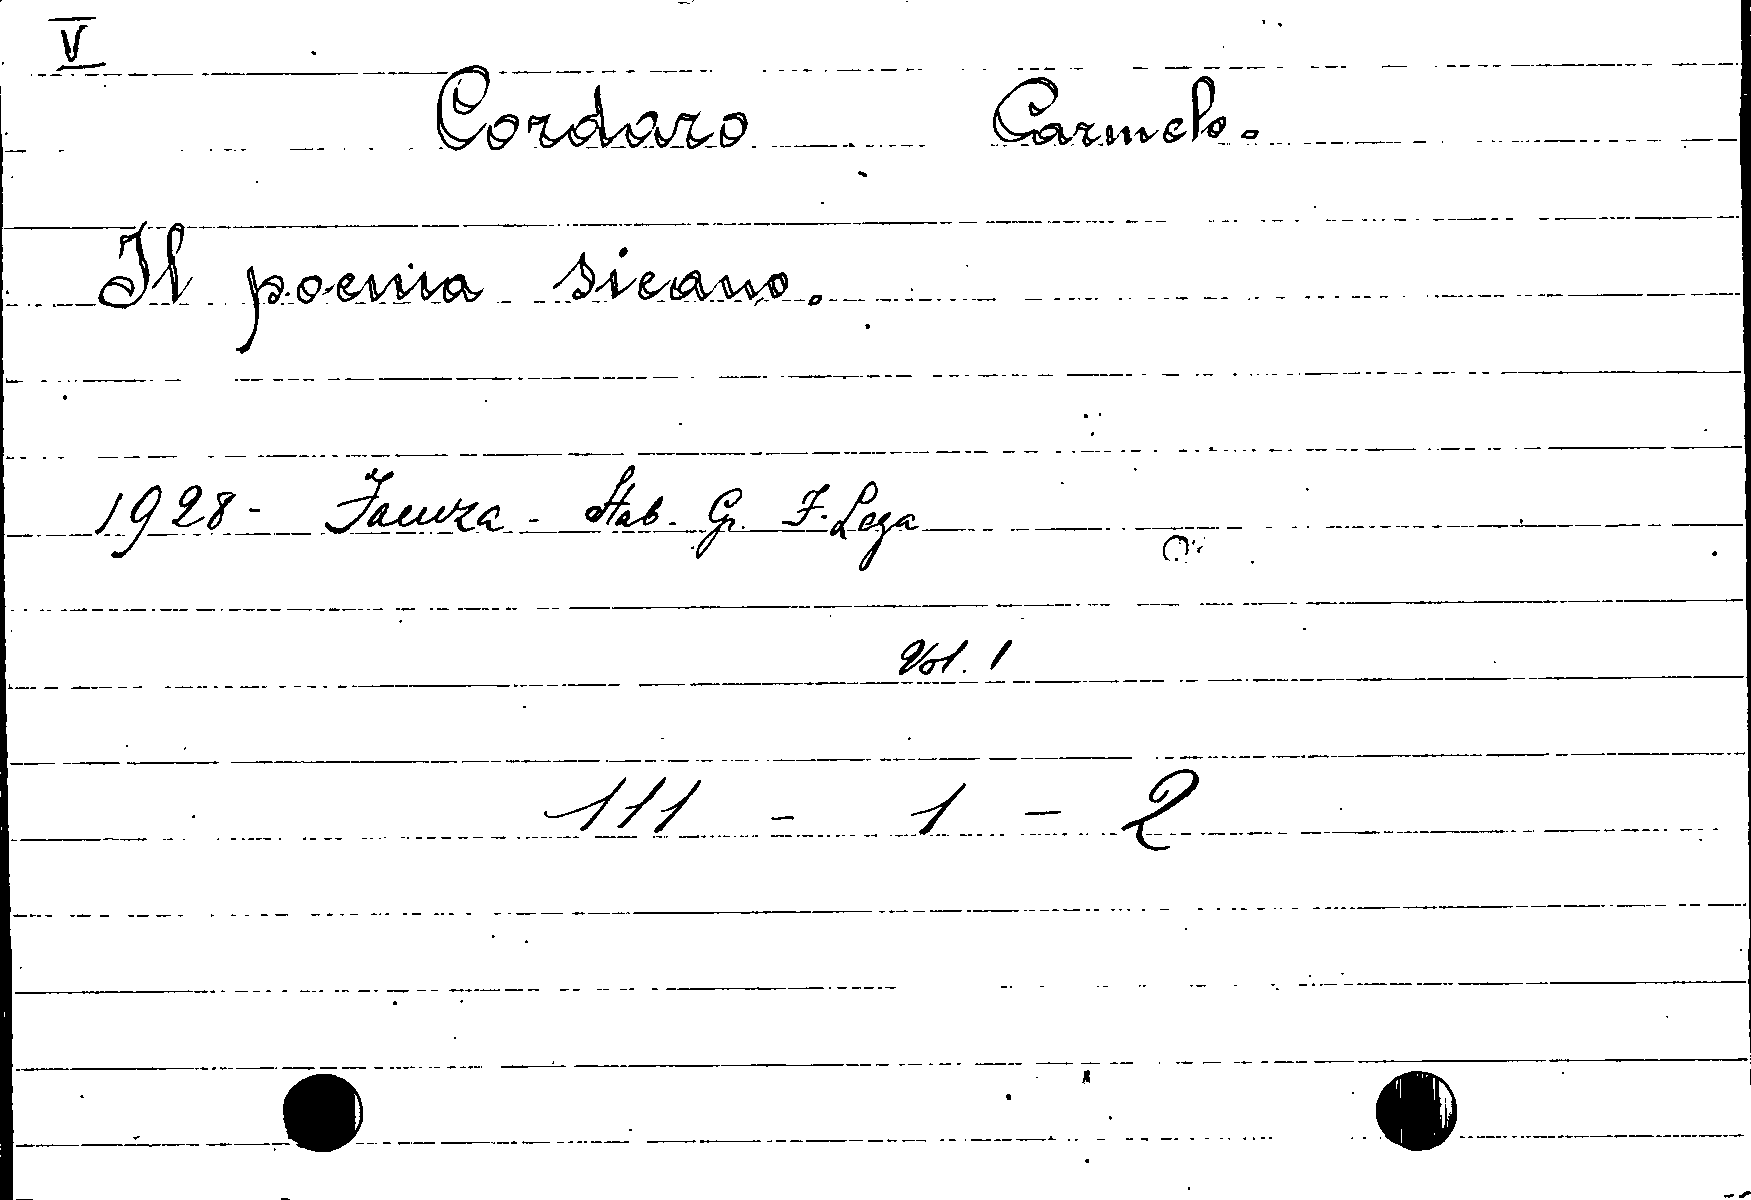 V
Cordaro Carmelo.
Il poema sicano.
1928 - Faenza - Stab. Gr. F. Lega
Vol. 1
111 - 1 - 2